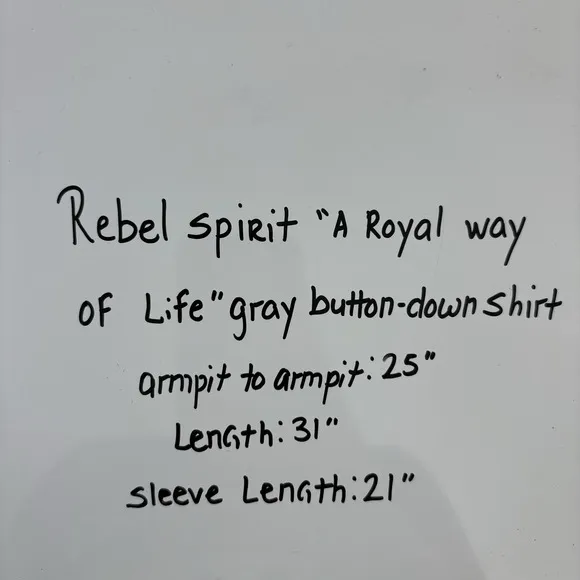 Rebel spirit "A Royal way
of Life" gray button-down shirt
armpit to armpit: 25"
Length: 31"
sleeve Length: 21"